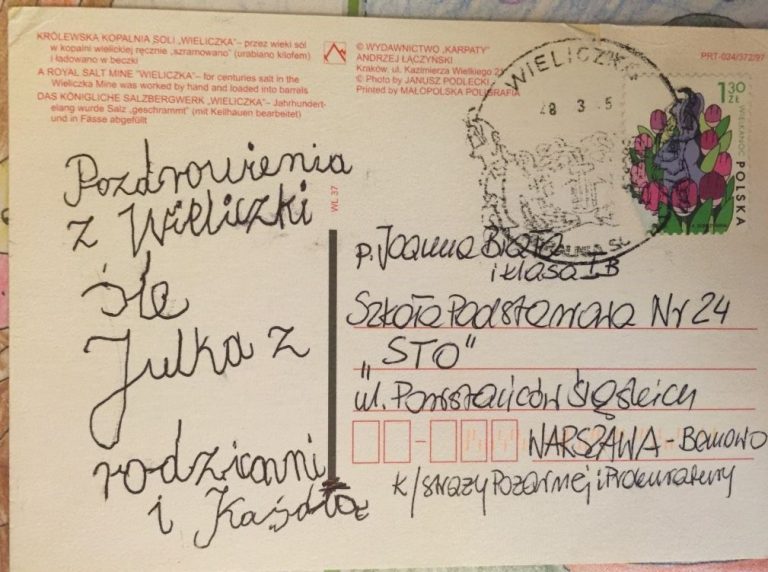 KRÓLEWSKA KOPALNIA SOLI „WIELICZKA” – przez wieki sól
w kopalni wielickiej ręcznie „szramowano” (urabiano kilofem)
i ładowano w beczki
A ROYAL SALT MINE "WIELICZKA" – for centuries salt in the
Wieliczka Mine was worked by hand and loaded into barrels
DAS KÖNIGLICHE SALZBERGWERK „WIELICZKA” – Jahrhundert-
elang wurde Salz „geschrammt” (mit Keilhauen bearbeitet)
und in Fässe abgefüllt
© WYDAWNICTWO „KARPATY”
ANDRZEJ ŁĄCZYŃSKI
Kraków, ul. Kazimierza Wielkiego
© Photo by JANUSZ PODLECKI
Printed by MAŁOPOLSKA POLIGRAFIA
PRT-034/372/97
WIELICZKA
28 3 5
1,30
ZŁ
WIELKANOC
POLSKA
WL 37
Pozdrowienia
z Wieliczki
śle
Julka z
rodzicami
i
p. Joanna Biała
i klasa I B
Szkoła Podstawowa Nr 24
„STO”
ul. Powstańców Śląskich
WARSZAWA - Bemowo
k/straży Pożarnej i Prokuratury